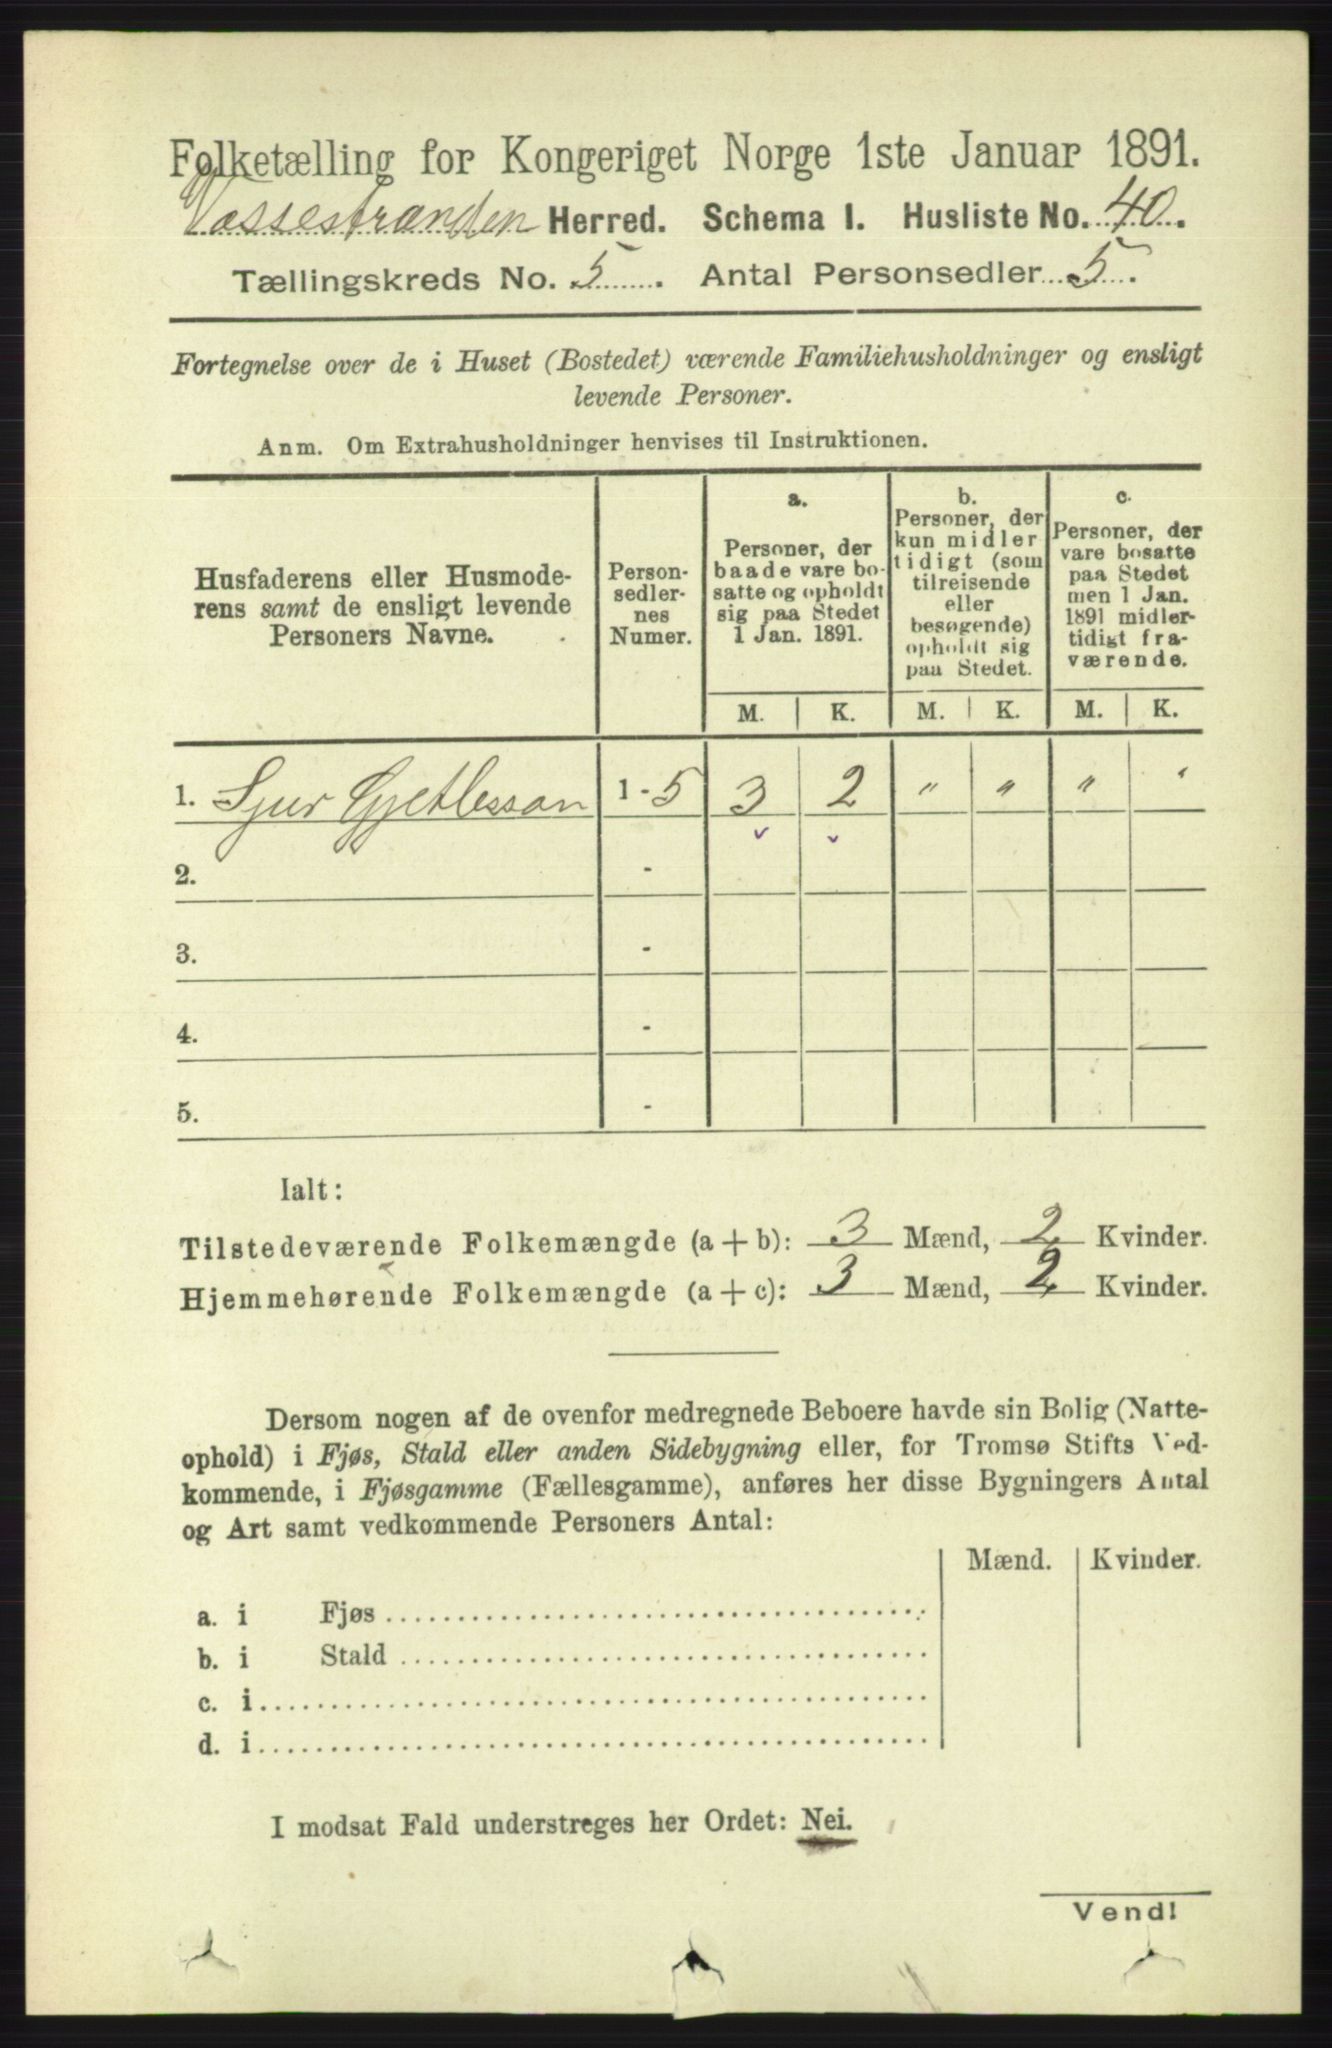 Folketælling for Kongeriget Norge 1ste Januar 1891.
Vossestranden Herred. Schema I. Husliste No. 40.
Tællingskreds No. 5. Antal Personsedler 5.
Fortegnelse over de i Huset (Bostedet) værende Familiehusholdninger og ensligt
levende Personer.
Anm. Om Extrahusholdninger henvises til Instruktionen.
Husfaderens eller Husmode-
rens samt de ensligt levende
Personers Navne.
Person-
sedler-
nes
Numer.
a.
Personer, der
baade vare bo-
satte og opholdt
sig paa Stedet
1 Jan. 1891.
b.
Personer, der
kun midler
tidigt (som
tilreisende
eller
besøgende)
opholdt sig
paa Stedet.
c.
Personer, der
vare bosatte
paa Stedet
men 1 Jan.
1891 midler-
tidigt fra-
værende.
M. K. M. K. M. K.
1. Sjur Gjetlesson 1-5 3 2 " " " "
2. -
3. -
4. -
5. -
Ialt:
Tilstedeværende Folkemængde (a + b): 3 Mænd, 2 Kvinder.
Hjemmehørende Folkemængde (a + c): 3 Mænd, 2 Kvinder.
Dersom nogen af de ovenfor medregnede Beboere havde sin Bolig (Natte-
ophold) i Fjøs, Stald eller anden Sidebygning eller, for Tromsø Stifts Ved-
kommende, i Fjøsgamme (Fællesgamme), anføres her disse Bygningers Antal
og Art samt vedkommende Personers Antal:
Mænd. Kvinder.
a. i Fjøs
b. i Stald
c. i
d. i
I modsat Fald understreges her Ordet: Nei.
Vend!